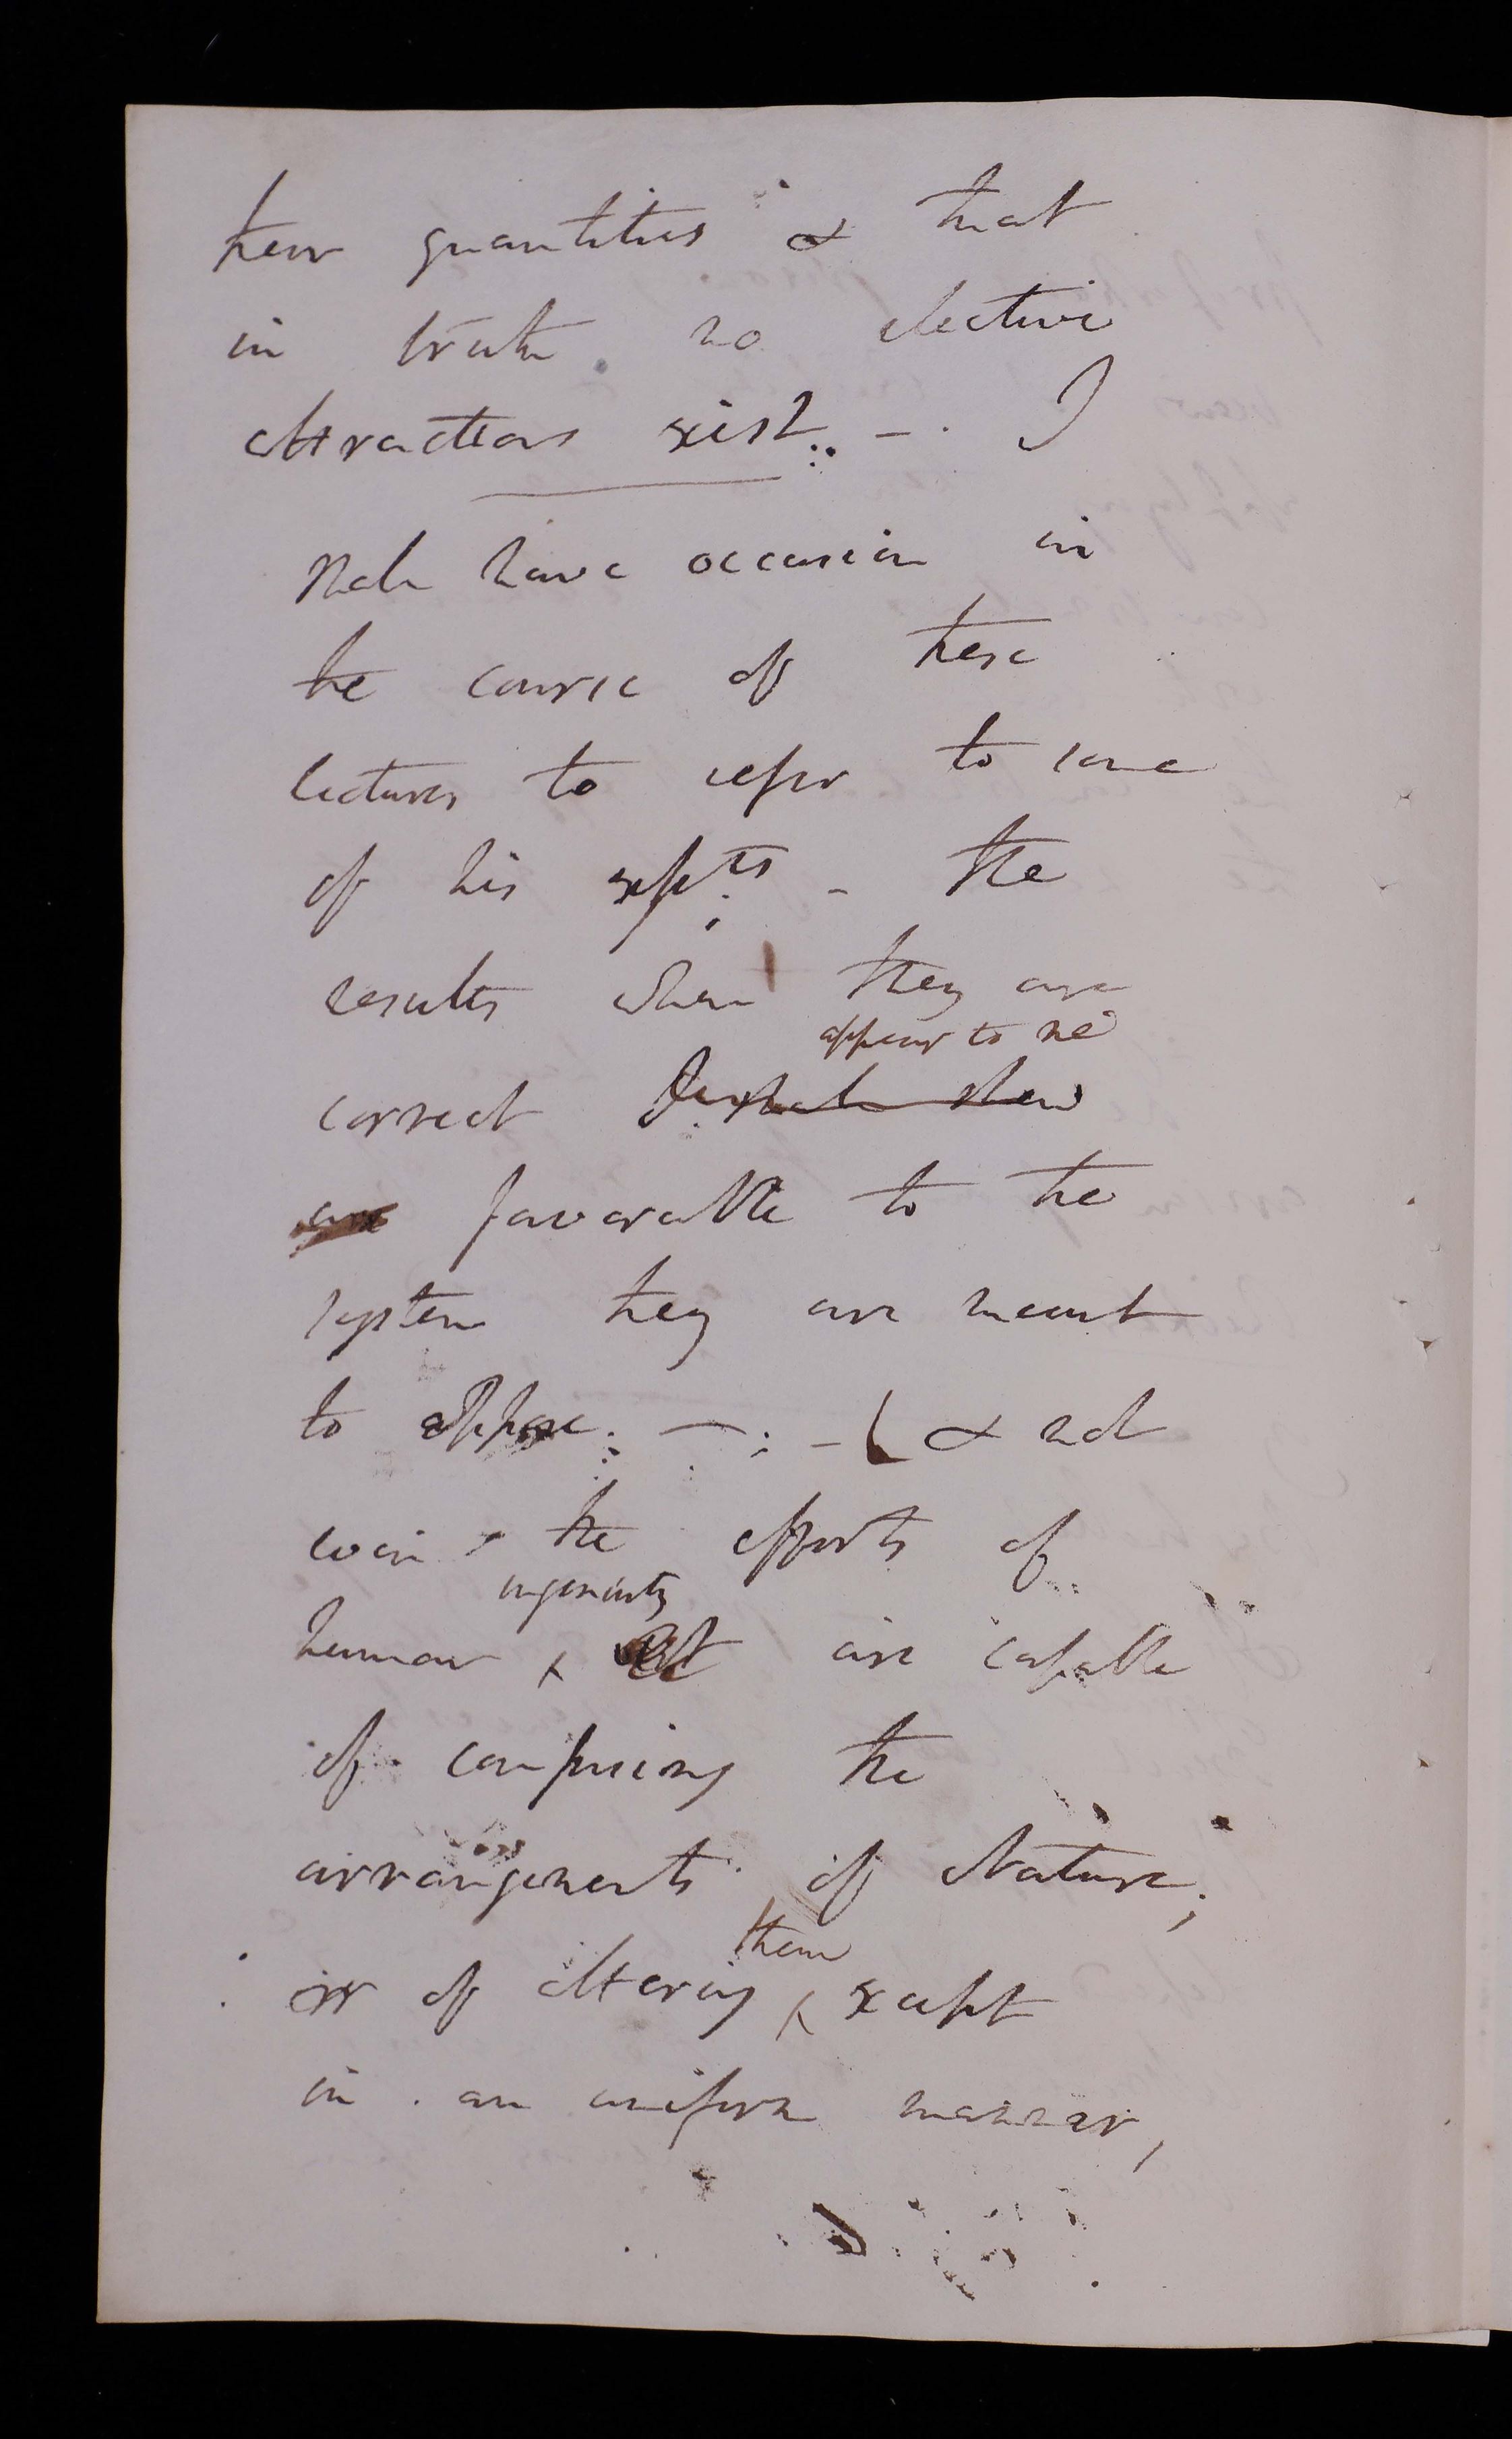 their quantities & that
in truth no elective
attractions exist. – . I
shall have occasion in
the course of these
lectures to refer to some
of his expts – the
results when they are
appear to me
correct I shall shew
are favorable to the
system they are meant
to oppose. – ; – & not
even the efforts of
ingenuity
human art are capable
of confusing the
arrangements of Nature;
them
or of altering except
in an uniform manner,